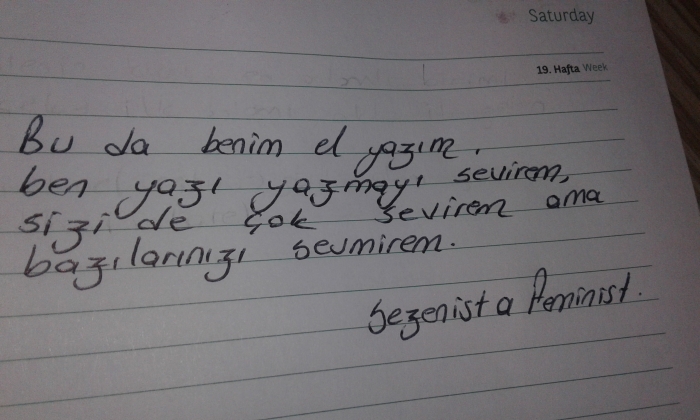 Saturday
19. Hafta Week
Bu da benim el yazım.
ben yazı yazmayı sevirem,
sizi de çok sevirem ama
bazılarınızı sevmirem.
Sezenist a Feminist.